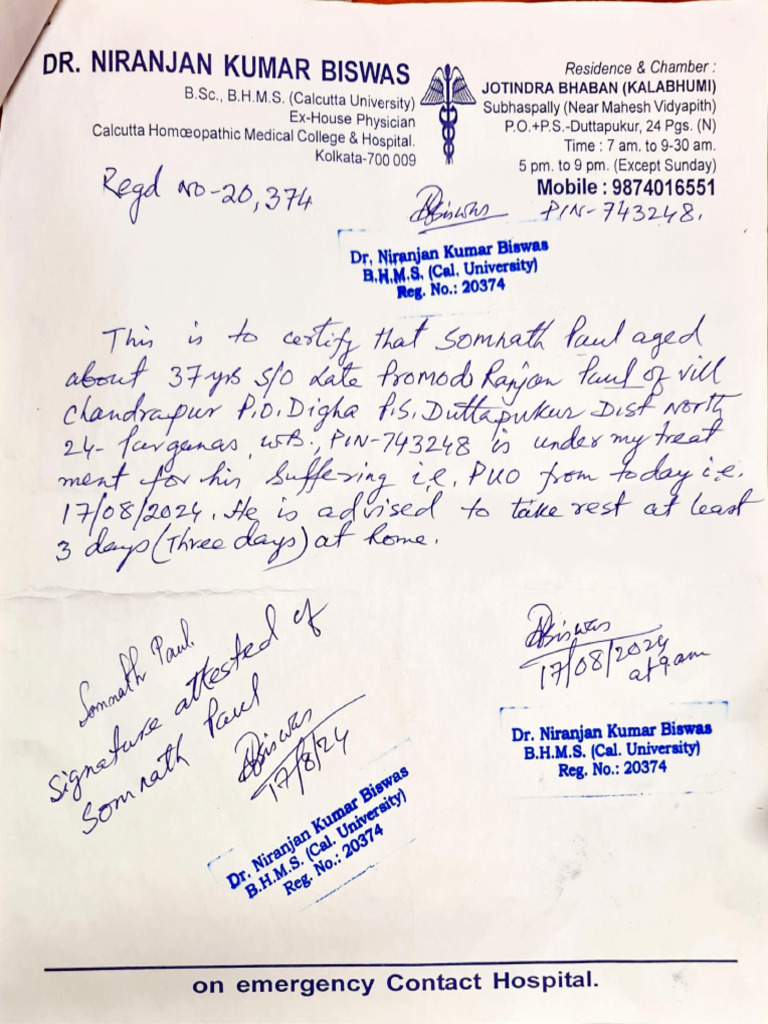 DR. NIRANJAN KUMAR BISWAS
B.Sc., B.H.M.S. (Calcutta University)
Ex-House Physician
Calcutta Homœopathic Medical College & Hospital.
Kolkata-700 009
Residence & Chamber :
JOTINDRA BHABAN (KALABHUMI)
Subhaspally (Near Mahesh Vidyapith)
P.O.+P.S.-Duttapukur, 24 Pgs. (N)
Time : 7 am. to 9-30 am.
5 pm. to 9 pm. (Except Sunday)
Mobile : 9874016551
Regd No-20,374
Biswas
PIN-743248.
Dr. Niranjan Kumar Biswas
B.H.M.S. (Cal. University)
Reg. No.: 20374
This is to certify that Somnath Paul aged
about 37yrs S/O Late Promod Ranjan Paul of vill
Chandrapur P.O. Digha P.S. Duttapukur Dist North
24-Parganas, WB., PIN-743248 is under my treat
ment for his suffering i.e, PUO from today i.e.
17/08/2024. He is advised to take rest at least
3 days (Three days) at home.
Somnath Paul.
Signature attested of
Somnath Paul
Biswas
17/8/24
Dr. Niranjan Kumar Biswas
B.H.M.S. (Cal. University)
Reg. No.: 20374
Biswas
17/08/2024
at 9am
Dr. Niranjan Kumar Biswas
B.H.M.S. (Cal. University)
Reg. No.: 20374
on emergency Contact Hospital.